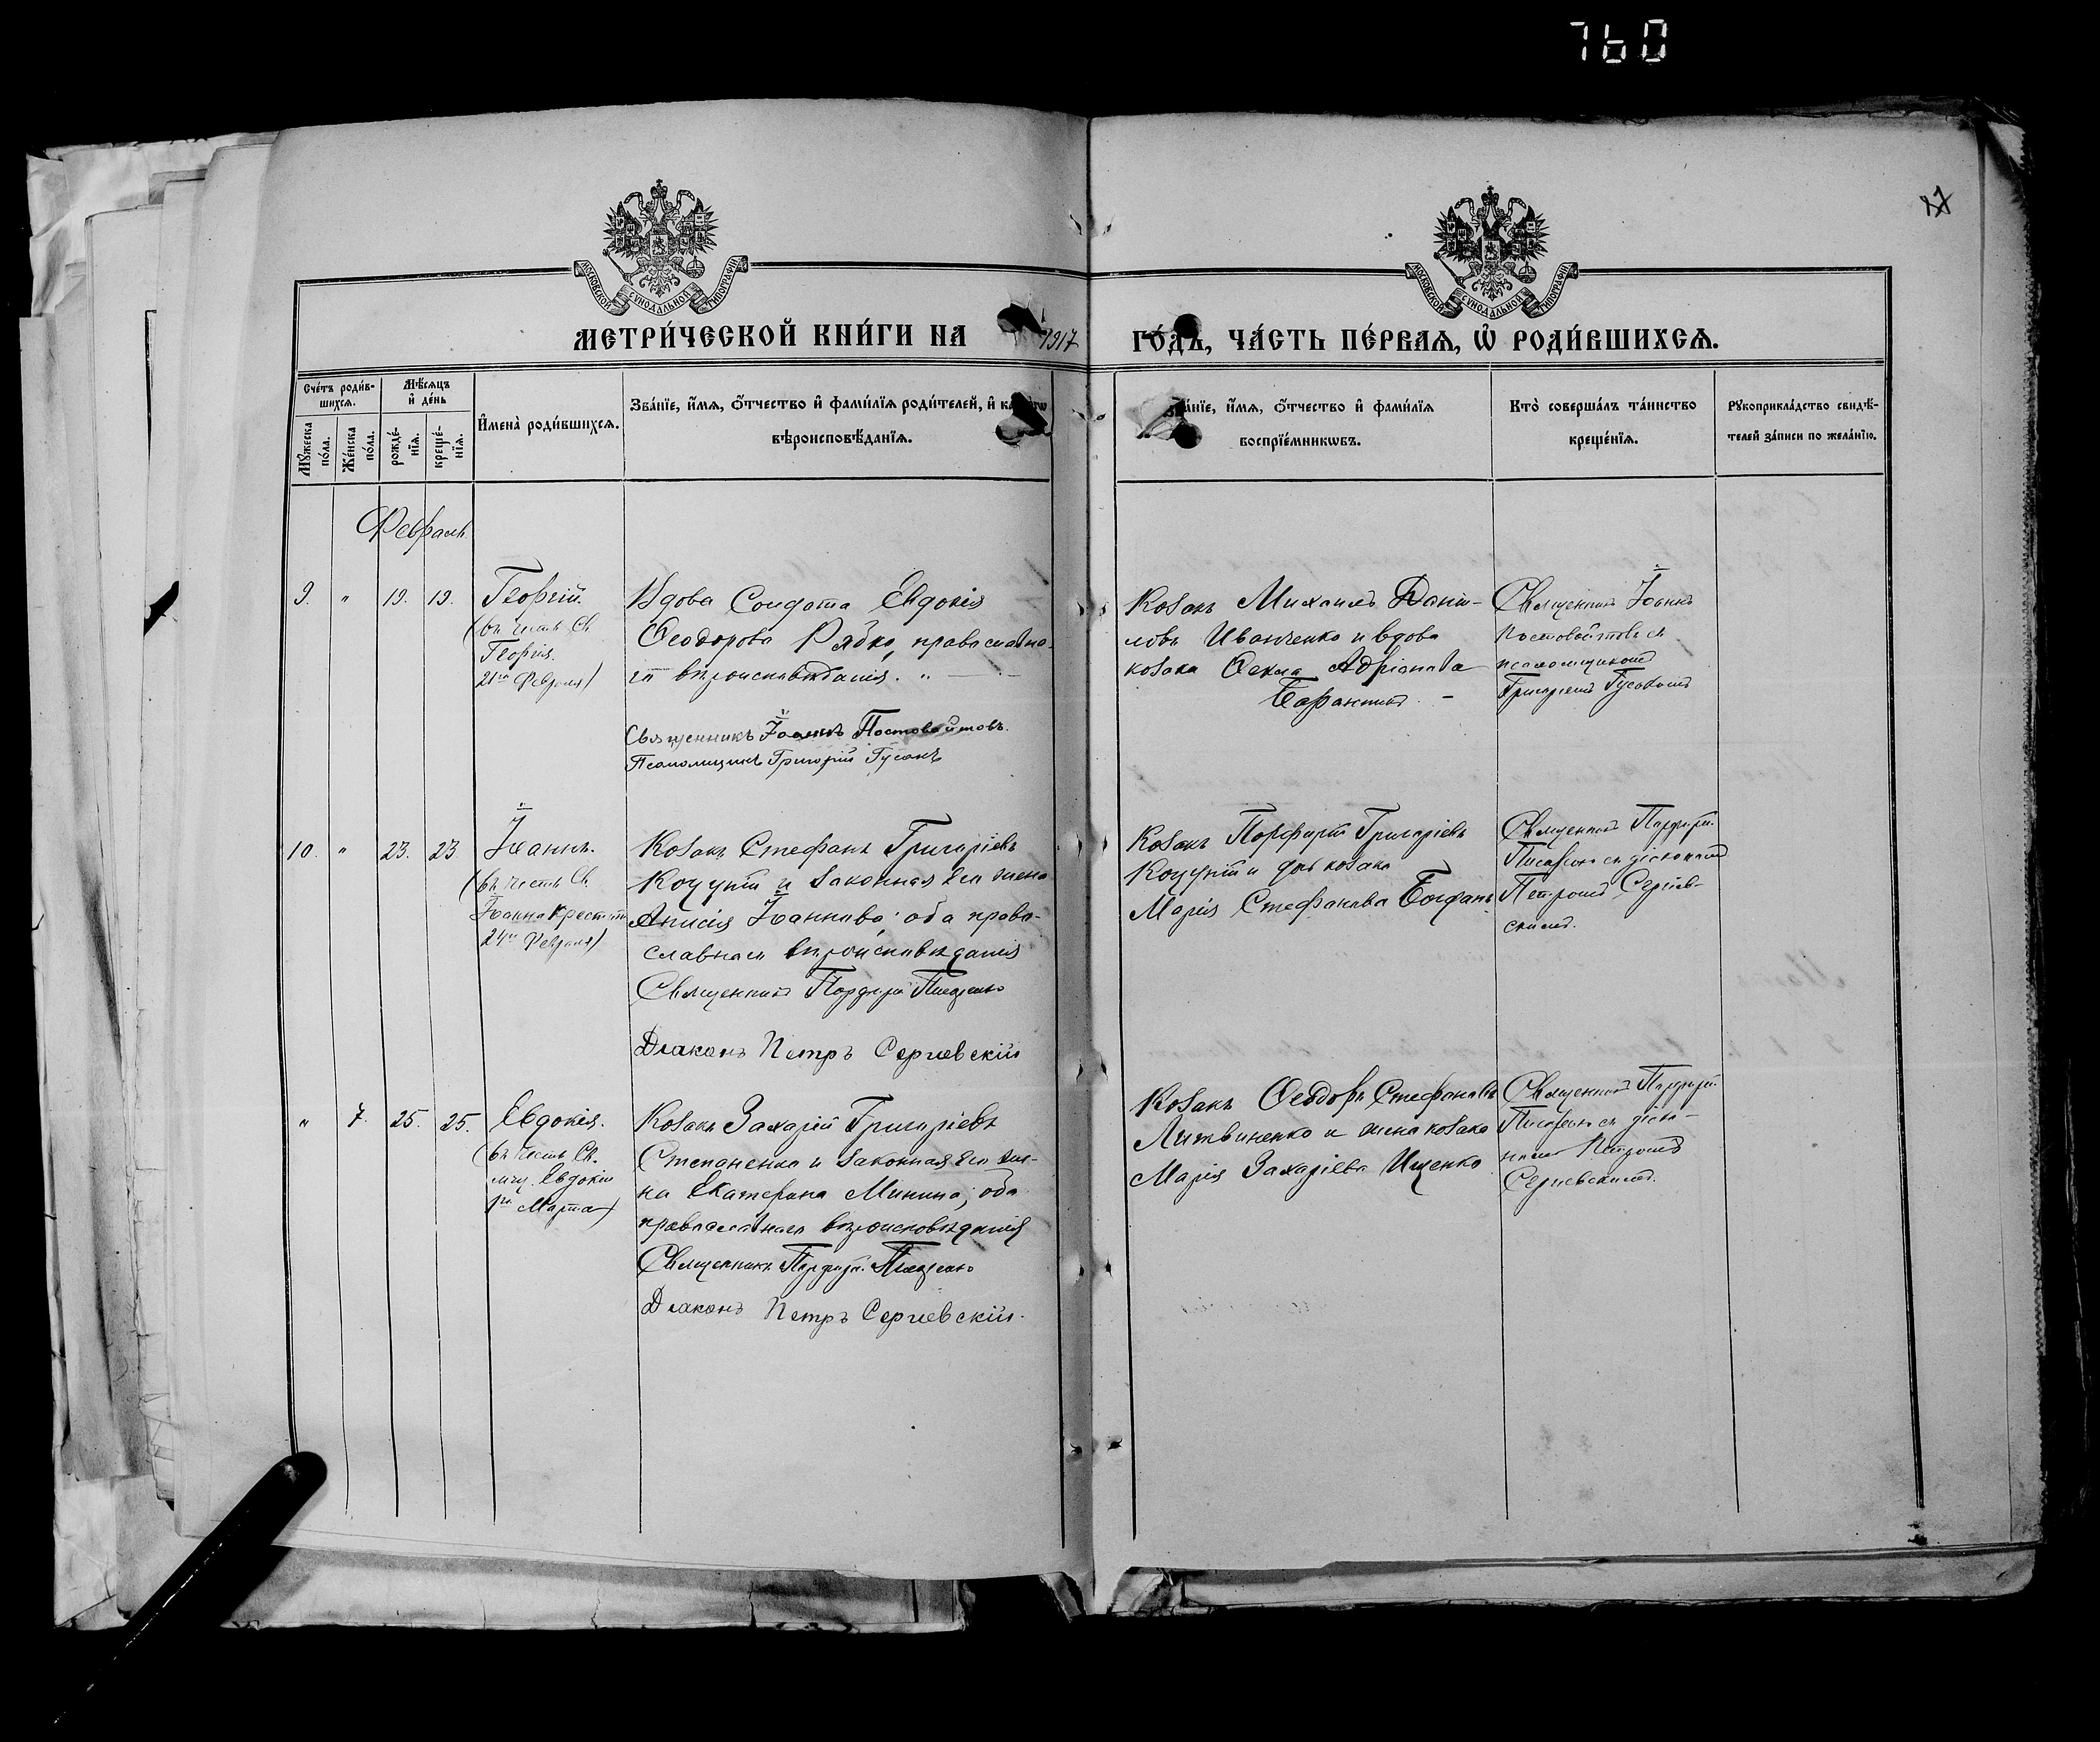 760
17
МОСКОВСКОЙ СѴНОДАЛЬНОЙ ТИПОГРАФІИ
МОСКОВСКОЙ СѴНОДАЛЬНОЙ ТИПОГРАФІИ
МЕТРИ́ЧЕСКОЙ КНИ́ГИ НА 1917 ГО́ДЪ, ЧА́СТЬ ПЕ́РВАѦ, Ѡ҆ РОДИ́ВШИХСѦ.
Сче́тъ роди́в-
шихсѧ.
Мꙋ́жеска по́ла.
Же́нска по́ла.
Мѣ́сѧцъ и҆ де́нь
рожде́-
нїѧ.
креще́-
нїѧ.
И҆мена̀ роди́вшихсѧ.
Зва́нїе, и҆́мѧ, ѻ҆́тчество и҆ фами́лїѧ роди́телей, и҆
вѣроисповѣ́данїѧ.
и҆́мѧ, ѻ҆́тчество и҆ фами́лїѧ
воспрїе́мникѡвъ.
Кто̀ соверша́лъ та́инство
креще́нїѧ.
Рꙋкоприкла́дство свидѣ́-
телей за́писи по жела́нїю.
Февраль
9. " 19. 19.
Георгій.
(въ честь Св.
Георгія.
21го Февраля)
Вдова Солдата Евдокія
Ѳеодорова Рябко, православна-
го вѣроисповѣданія. "
Священникъ Іоаннъ Постовойтовъ.
Псаломщикъ Григорій Гусакъ
Козакъ Михаилъ Дани-
ловъ Иванченко и вдова
козака Ѳекла Адріанова
Священникъ Іоаннъ
Постовойтовъ съ
псаломщикомъ
Григоріемъ Гусакомъ
10. " 23. 23
Іоаннъ.
(въ честь Св.
Іоанна Крестит.
24го Февраля)
Козакъ Стефанъ Григоріевъ
Коцупій и законная его жена
Анисія Іоаннова; оба право-
славнаго вѣроисповѣданія
Священникъ Порфирій
Діаконъ Петръ Сергіевскій
Козакъ Порфирій Григоріевъ
Коцупій и дочь козака
Марія Стефанова Богданъ
Священникъ Порфирій
съ діакономъ
Петромъ Сергіев-
скимъ.
" 7. 25. 25.
Евдокія.
(въ честь Св.
мчц. Евдокіи
1го Марта)
Козакъ Захарій Григоріевъ
Степаненко и законная его же-
на Екатерина Минина; оба
православнаго вѣроисповѣданія
Священникъ Порфирій
Діаконъ Петръ Сергіевскій.
Козакъ Ѳеодоръ Стефановъ
Литвиненко и жена козака
Марія Захаріева Ищенко
Священникъ Порфирій
съ діако-
номъ Петромъ
Сергіевскимъ.